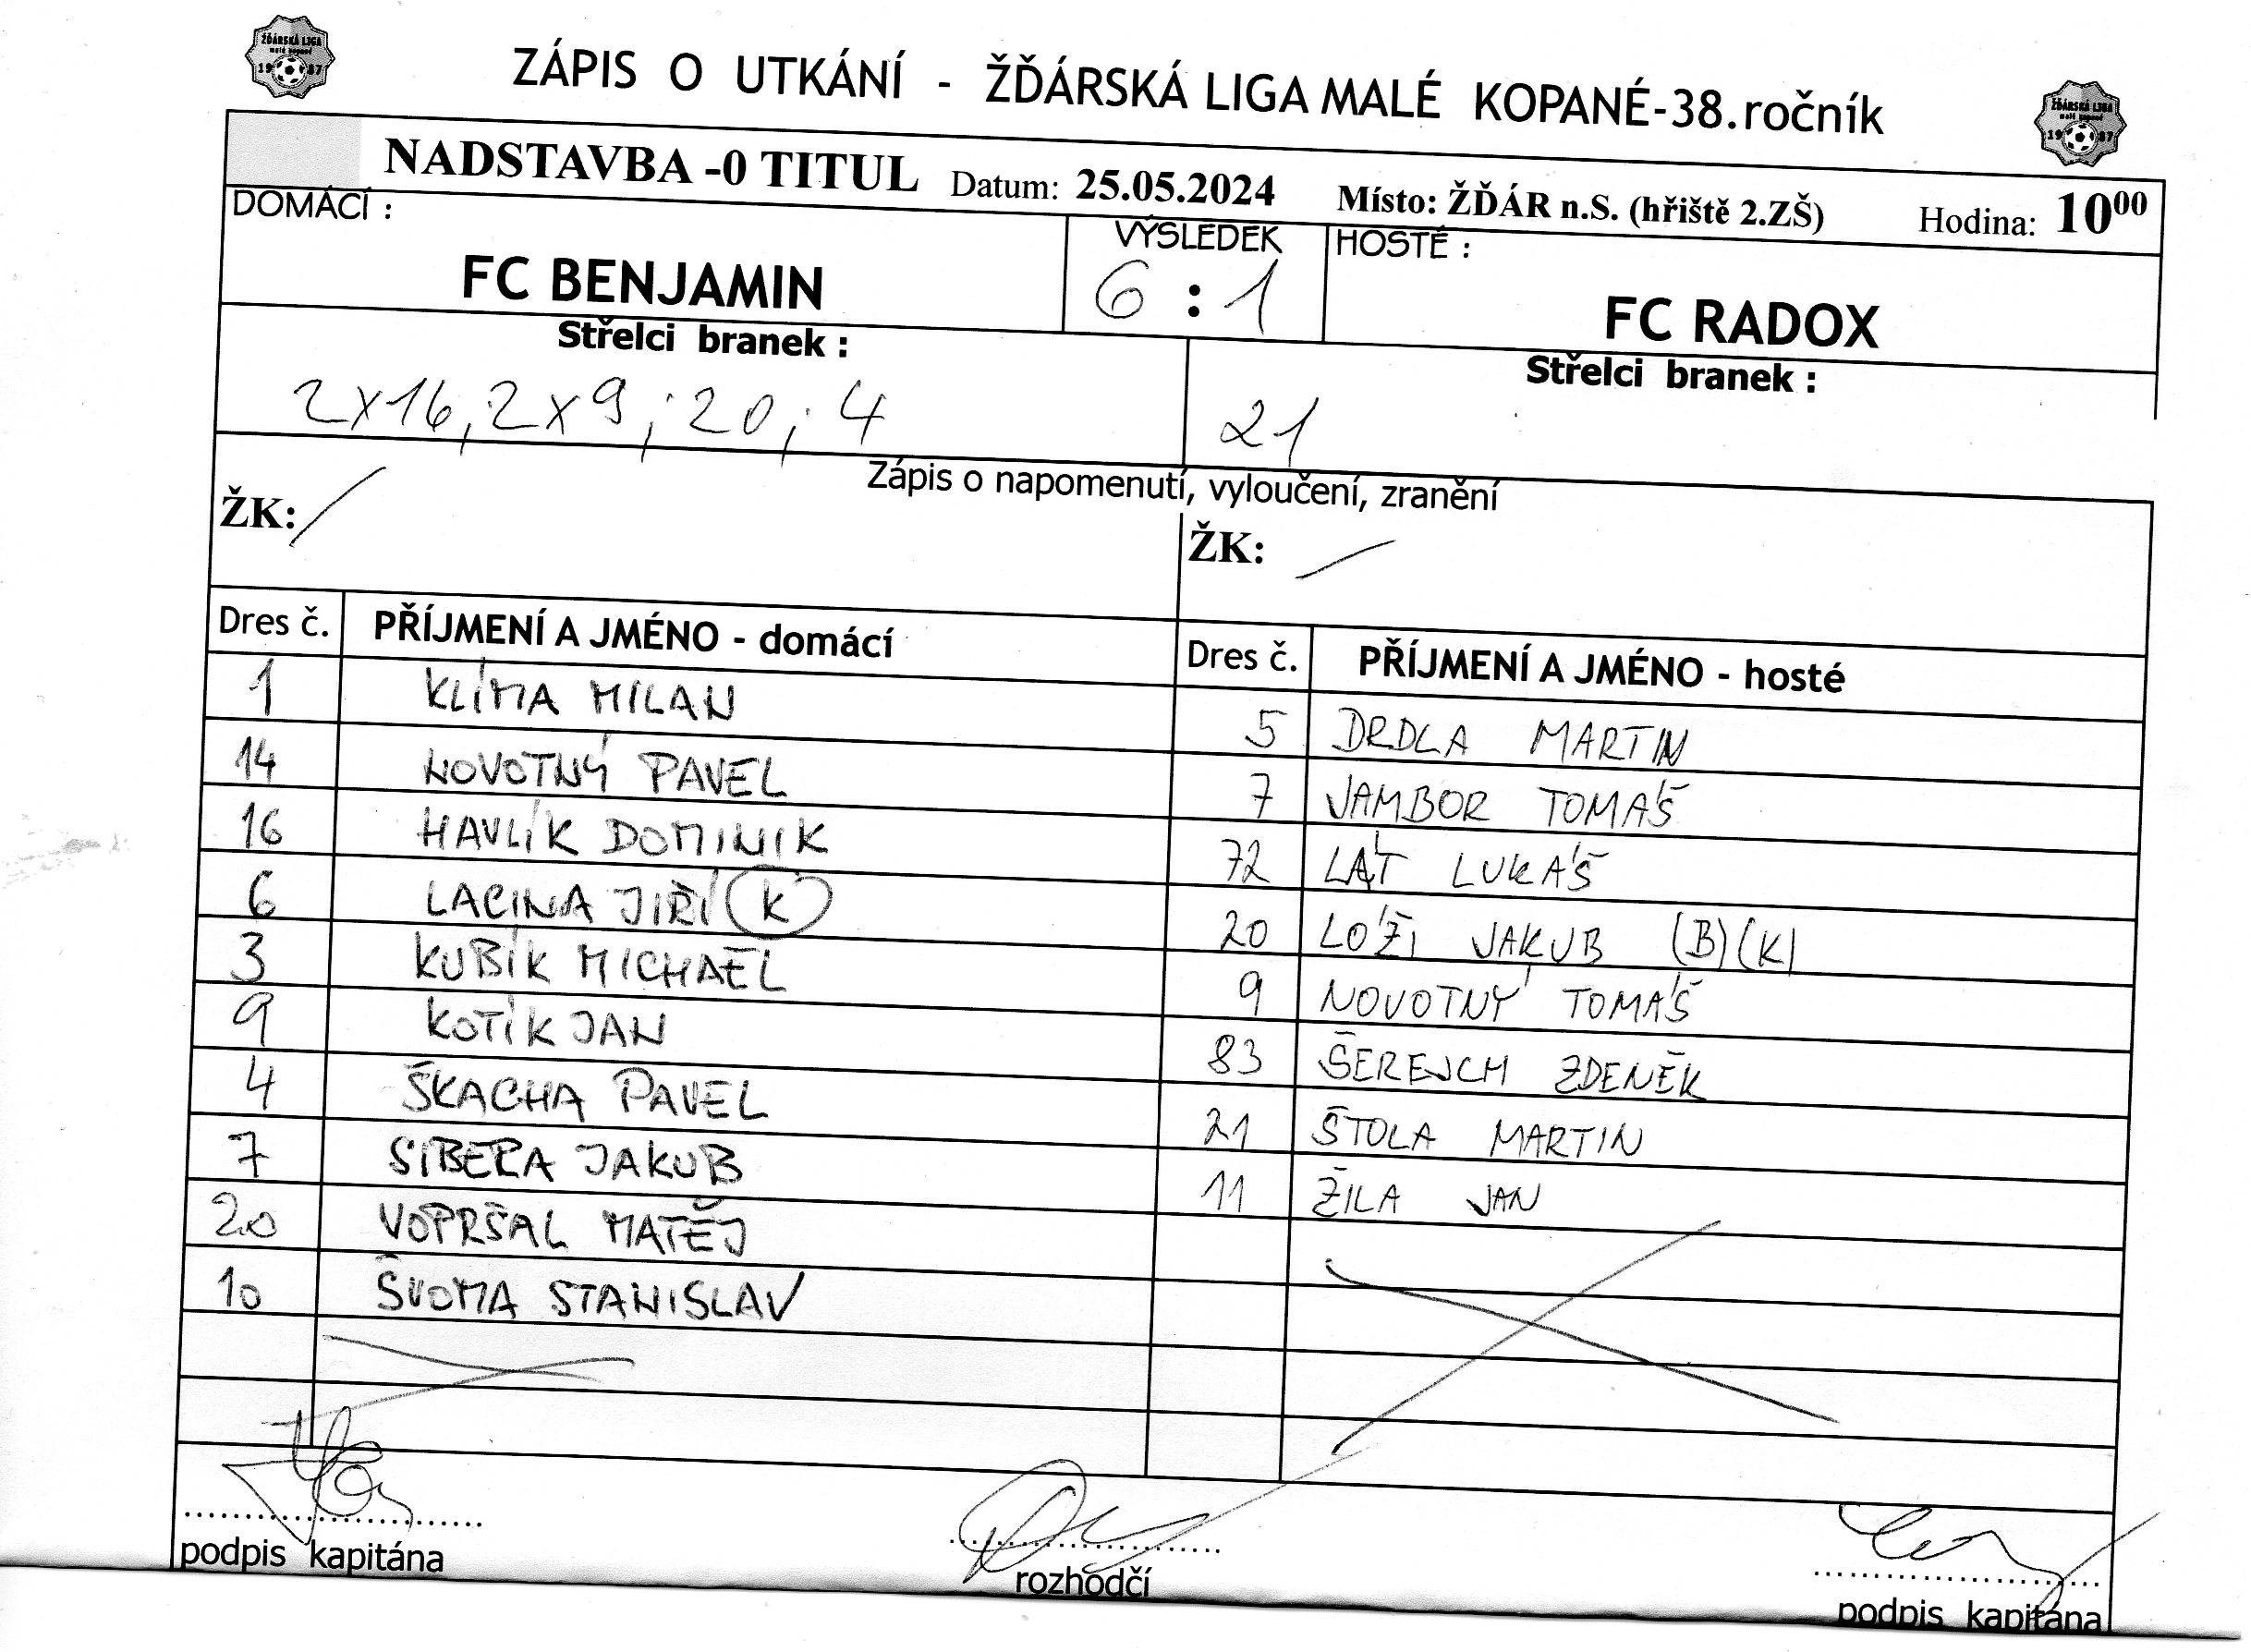 ZÁPIS O UTKÁNÍ - ŽĎÁRSKÁ LIGA MALÉ KOPANÉ-38.ročník
ŽĎÁRSKÁ LIGA
malé kopané
1987
ŽĎÁRSKÁ LIGA
malé kopané
1987
NADSTAVBA -0 TITUL Datum: 25.05.2024 Místo: ŽĎÁR n.S. (hřiště 2.ZŠ) Hodina: 10⁰⁰
DOMÁCÍ : VÝSLEDEK HOSTÉ :
FC BENJAMIN 6 : 1 FC RADOX
Střelci branek : Střelci branek :
2x16, 2x9, 20, 4 21
Zápis o napomenutí, vyloučení, zranění
ŽK: / ŽK: /
Dres č. PŘÍJMENÍ A JMÉNO - domácí Dres č. PŘÍJMENÍ A JMÉNO - hosté
1 KLÍMA MILAN 5 DRDLA MARTIN
14 NOVOTNÝ PAVEL 7 JAMBOR TOMÁŠ
16 HAVLÍK DOMINIK 72 LÁT LUKÁŠ
6 LACINA JIŘÍ (K) 20 LÓŽI JAKUB (B)(K)
3 KUBÍK MICHAEL 9 NOVOTNÝ TOMÁŠ
9 KOTÍK JAN 83 ŠEREJCH ZDENĚK
4 ŠKACHA PAVEL 21 ŠTOLA MARTIN
7 SIBERA JAKUB 11 ŽILA JAN
20 VOPRŠAL MATĚJ
10 ŠVOMA STANISLAV
podpis kapitána rozhodčí podpis kapitána